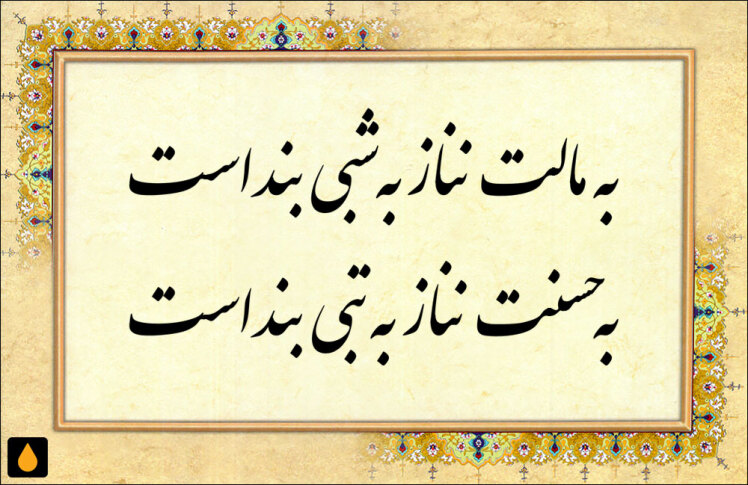 به مالت نناز به شبی بند است
به حسنت نناز به تبی بند است